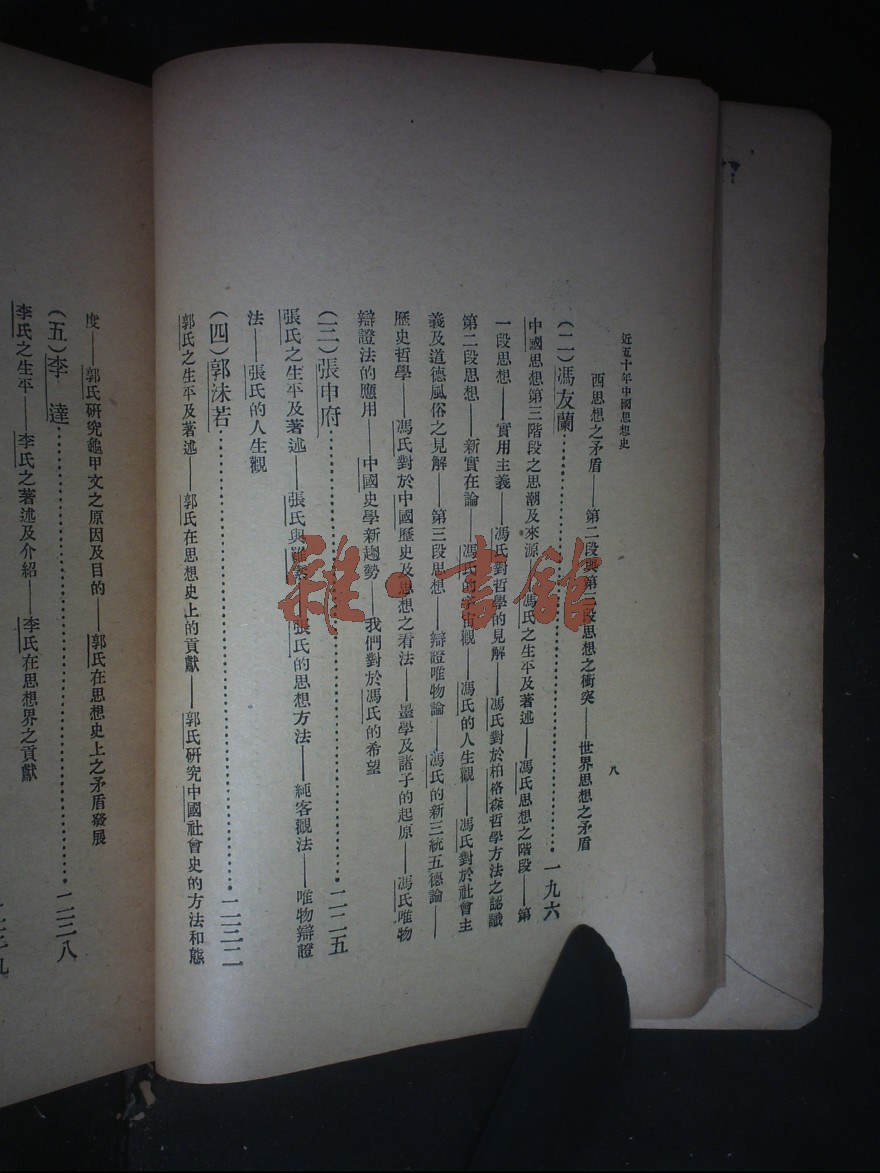 近五十年中國思想史
八
西思想之矛盾——第二段與第三段思想之衝突——世界思想之矛盾
(二)馮友蘭……一九六
中國思想第三階段之思潮及來源——馮氏之生平及著述——馮氏思想之階段——第
一段思想——實用主義——馮氏對哲學的見解——馮氏對於柏格森哲學方法之認識
第二段思想——新實在論——馮氏的宇宙觀——馮氏的人生觀——馮氏對於社會主
義及道德風俗之見解——第三段思想——辯證唯物論——馮氏的新三統五德論——
歷史哲學——馮氏對於中國歷史及思想之看法——墨學及諸子的起原——馮氏唯物
辯證法的應用——中國史學新趨勢——我們對於馮氏的希望
(三)張申府……二二五
張氏之生平及著述——張氏與羅素——張氏的思想方法——純客觀法——唯物辯證
法——張氏的人生觀
(四)郭沫若……二三二
郭氏之生平及著述——郭氏在思想史上的貢獻——郭氏研究中國社會史的方法和態
度——郭氏研究龜甲文之原因及目的——郭氏在思想史上之矛盾發展
(五)李達……二三八
李氏之生平——李氏之著述及介紹——李氏在思想界之貢獻
雜·書館